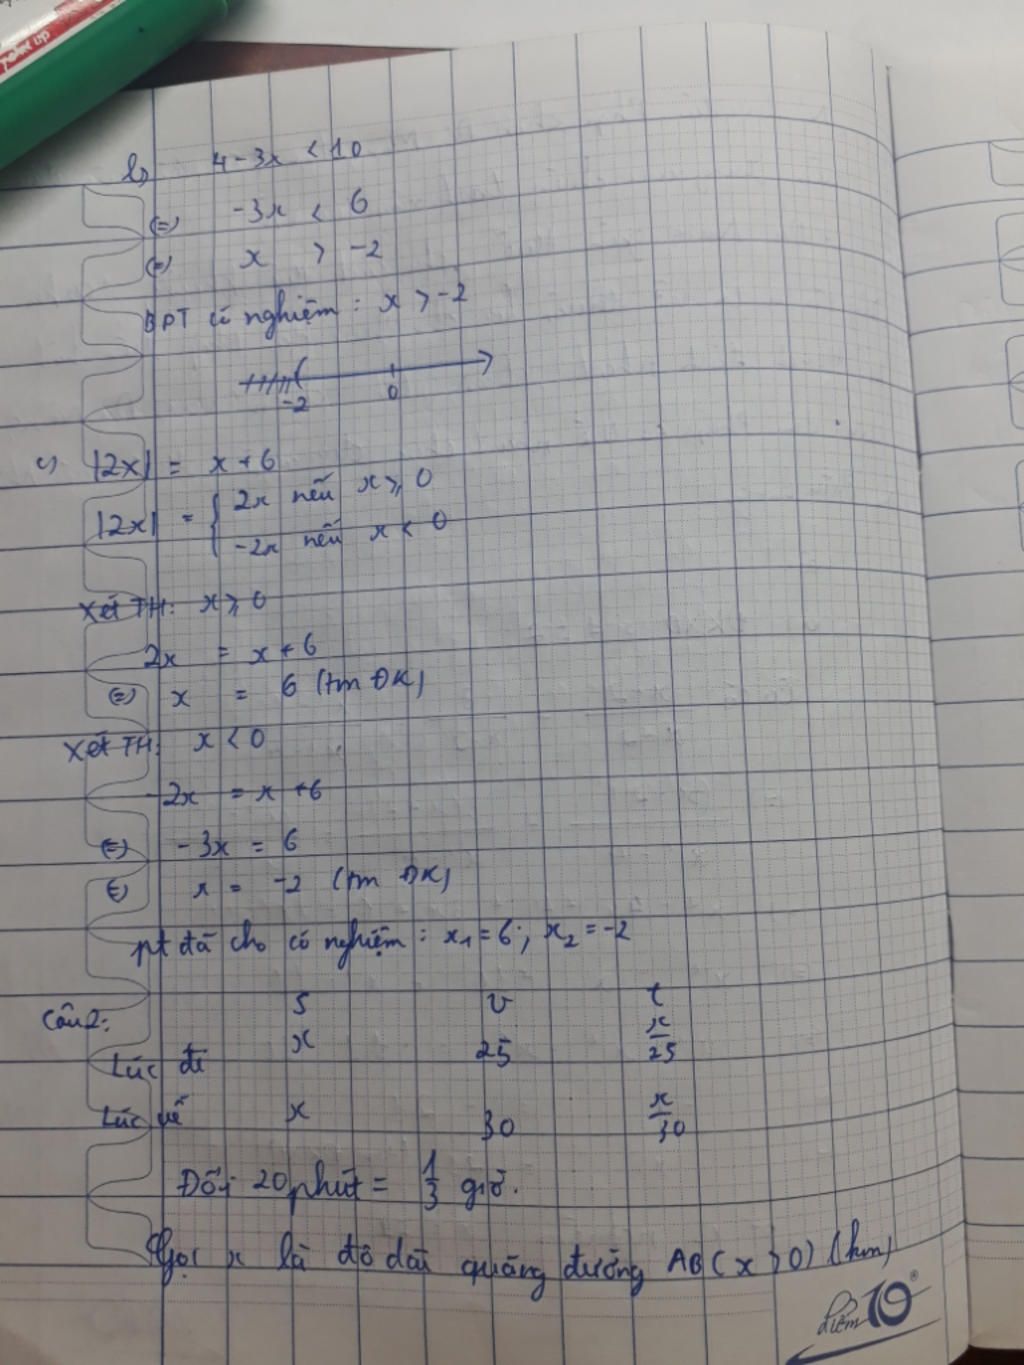 b) 4-3x < 10
(=) -3x < 6
(=) x > -2
BPT có nghiệm : x > -2
-2 0
c) |2x| = x+6
|2x| = { 2x nếu x ⩾ 0
-2x nếu x < 0
Xét TH: x ⩾ 0
2x = x+6
(=) x = 6 (tm ĐK)
Xét TH: x < 0
-2x = x +6
(=) -3x = 6
(=) x = -2 (tm ĐK)
pt đã cho có nghiệm : x₁ = 6 ; x₂ = -2
Câu 2: S v t
Lúc đi x 25 x/25
Lúc về x 30 x/30
Đổi 20 phút = 1/3 giờ.
Gọi x là độ dài quãng đường AB ( x > 0) (km)
điểm 10